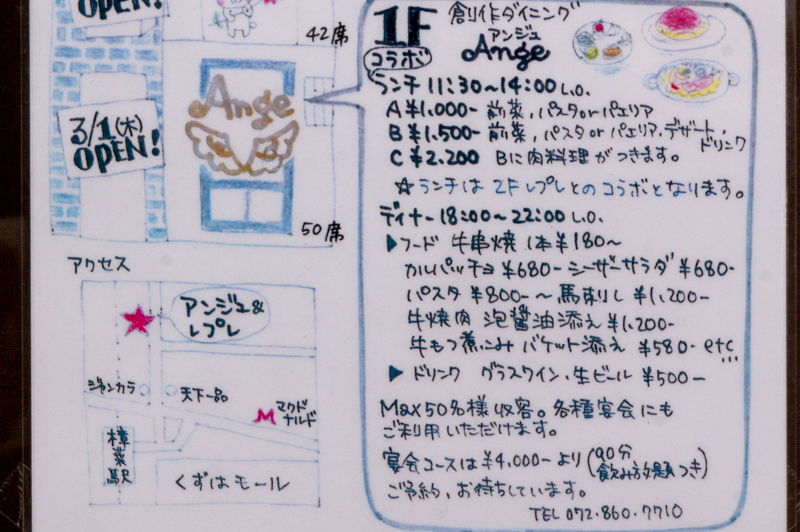 OPEN!
42席
Ange
3/1(木)
OPEN!
50席
アクセス
アンジュ&
レプレ
ジャンカラ
天下一品
マクド
ナルド
樟葉駅
くずはモール
1F 創作ダイニング
アンジュ
Ange
コラボ
ランチ 11:30〜14:00 L.O.
A ¥1.000- 前菜,パスタorパエリア
B ¥1.500- 前菜,パスタorパエリア,デザート,
ドリンク
C ¥2.200 Bに肉料理がつきます。
☆ランチは2Fレプレとのコラボとなります。
ディナー18:00〜22:00 L.O.
▶フード 牛串焼 1本¥180〜
カルパッチョ ¥680- シーザーサラダ ¥680-
パスタ ¥800-〜 馬刺し ¥1,200-
牛焼肉 泡醤油添え ¥1,200-
牛もつ煮込み バケット添え ¥580- etc...
▶ドリンク グラスワイン,生ビール ¥500〜
Max50名様収容。各種宴会にも
ご利用いただけます。
宴会コースは¥4,000-より(90分
飲み放題つき)
ご予約,お待ちしています。
TEL 072.860.7710